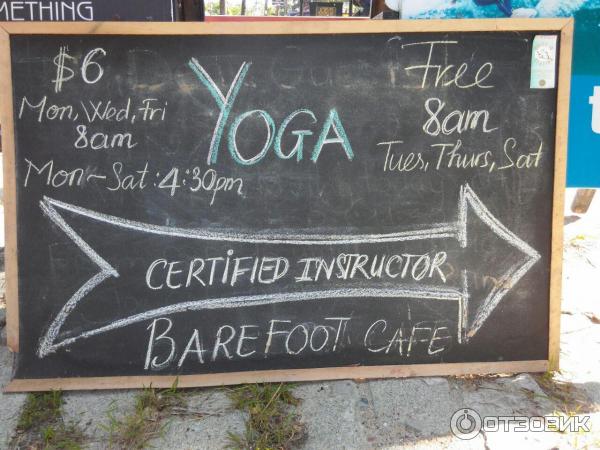 METHING
$6
Mon, Wed, Fri
8am
Mon-Sat: 4:30pm
YOGA
Free
8am
Tues, Thurs, Sat
CERTIFIED INSTRUCTOR
BAREFOOT CAFE
t
ОТЗОВИК